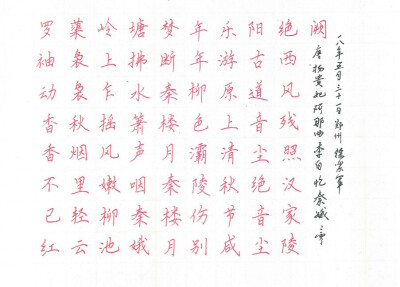 罗袖动香香不已红
蕖袅袅秋烟里轻云
岭上乍摇风嫩柳池
塘拂水箫声咽秦娥
梦断秦楼月秦楼月
年年柳色灞陵伤别
乐游原上清秋节咸
阳古道音尘绝音尘
绝西风残照汉家陵
阙
唐杨贵妃阿那曲李白忆秦娥二
一八年五月三十一日郑州